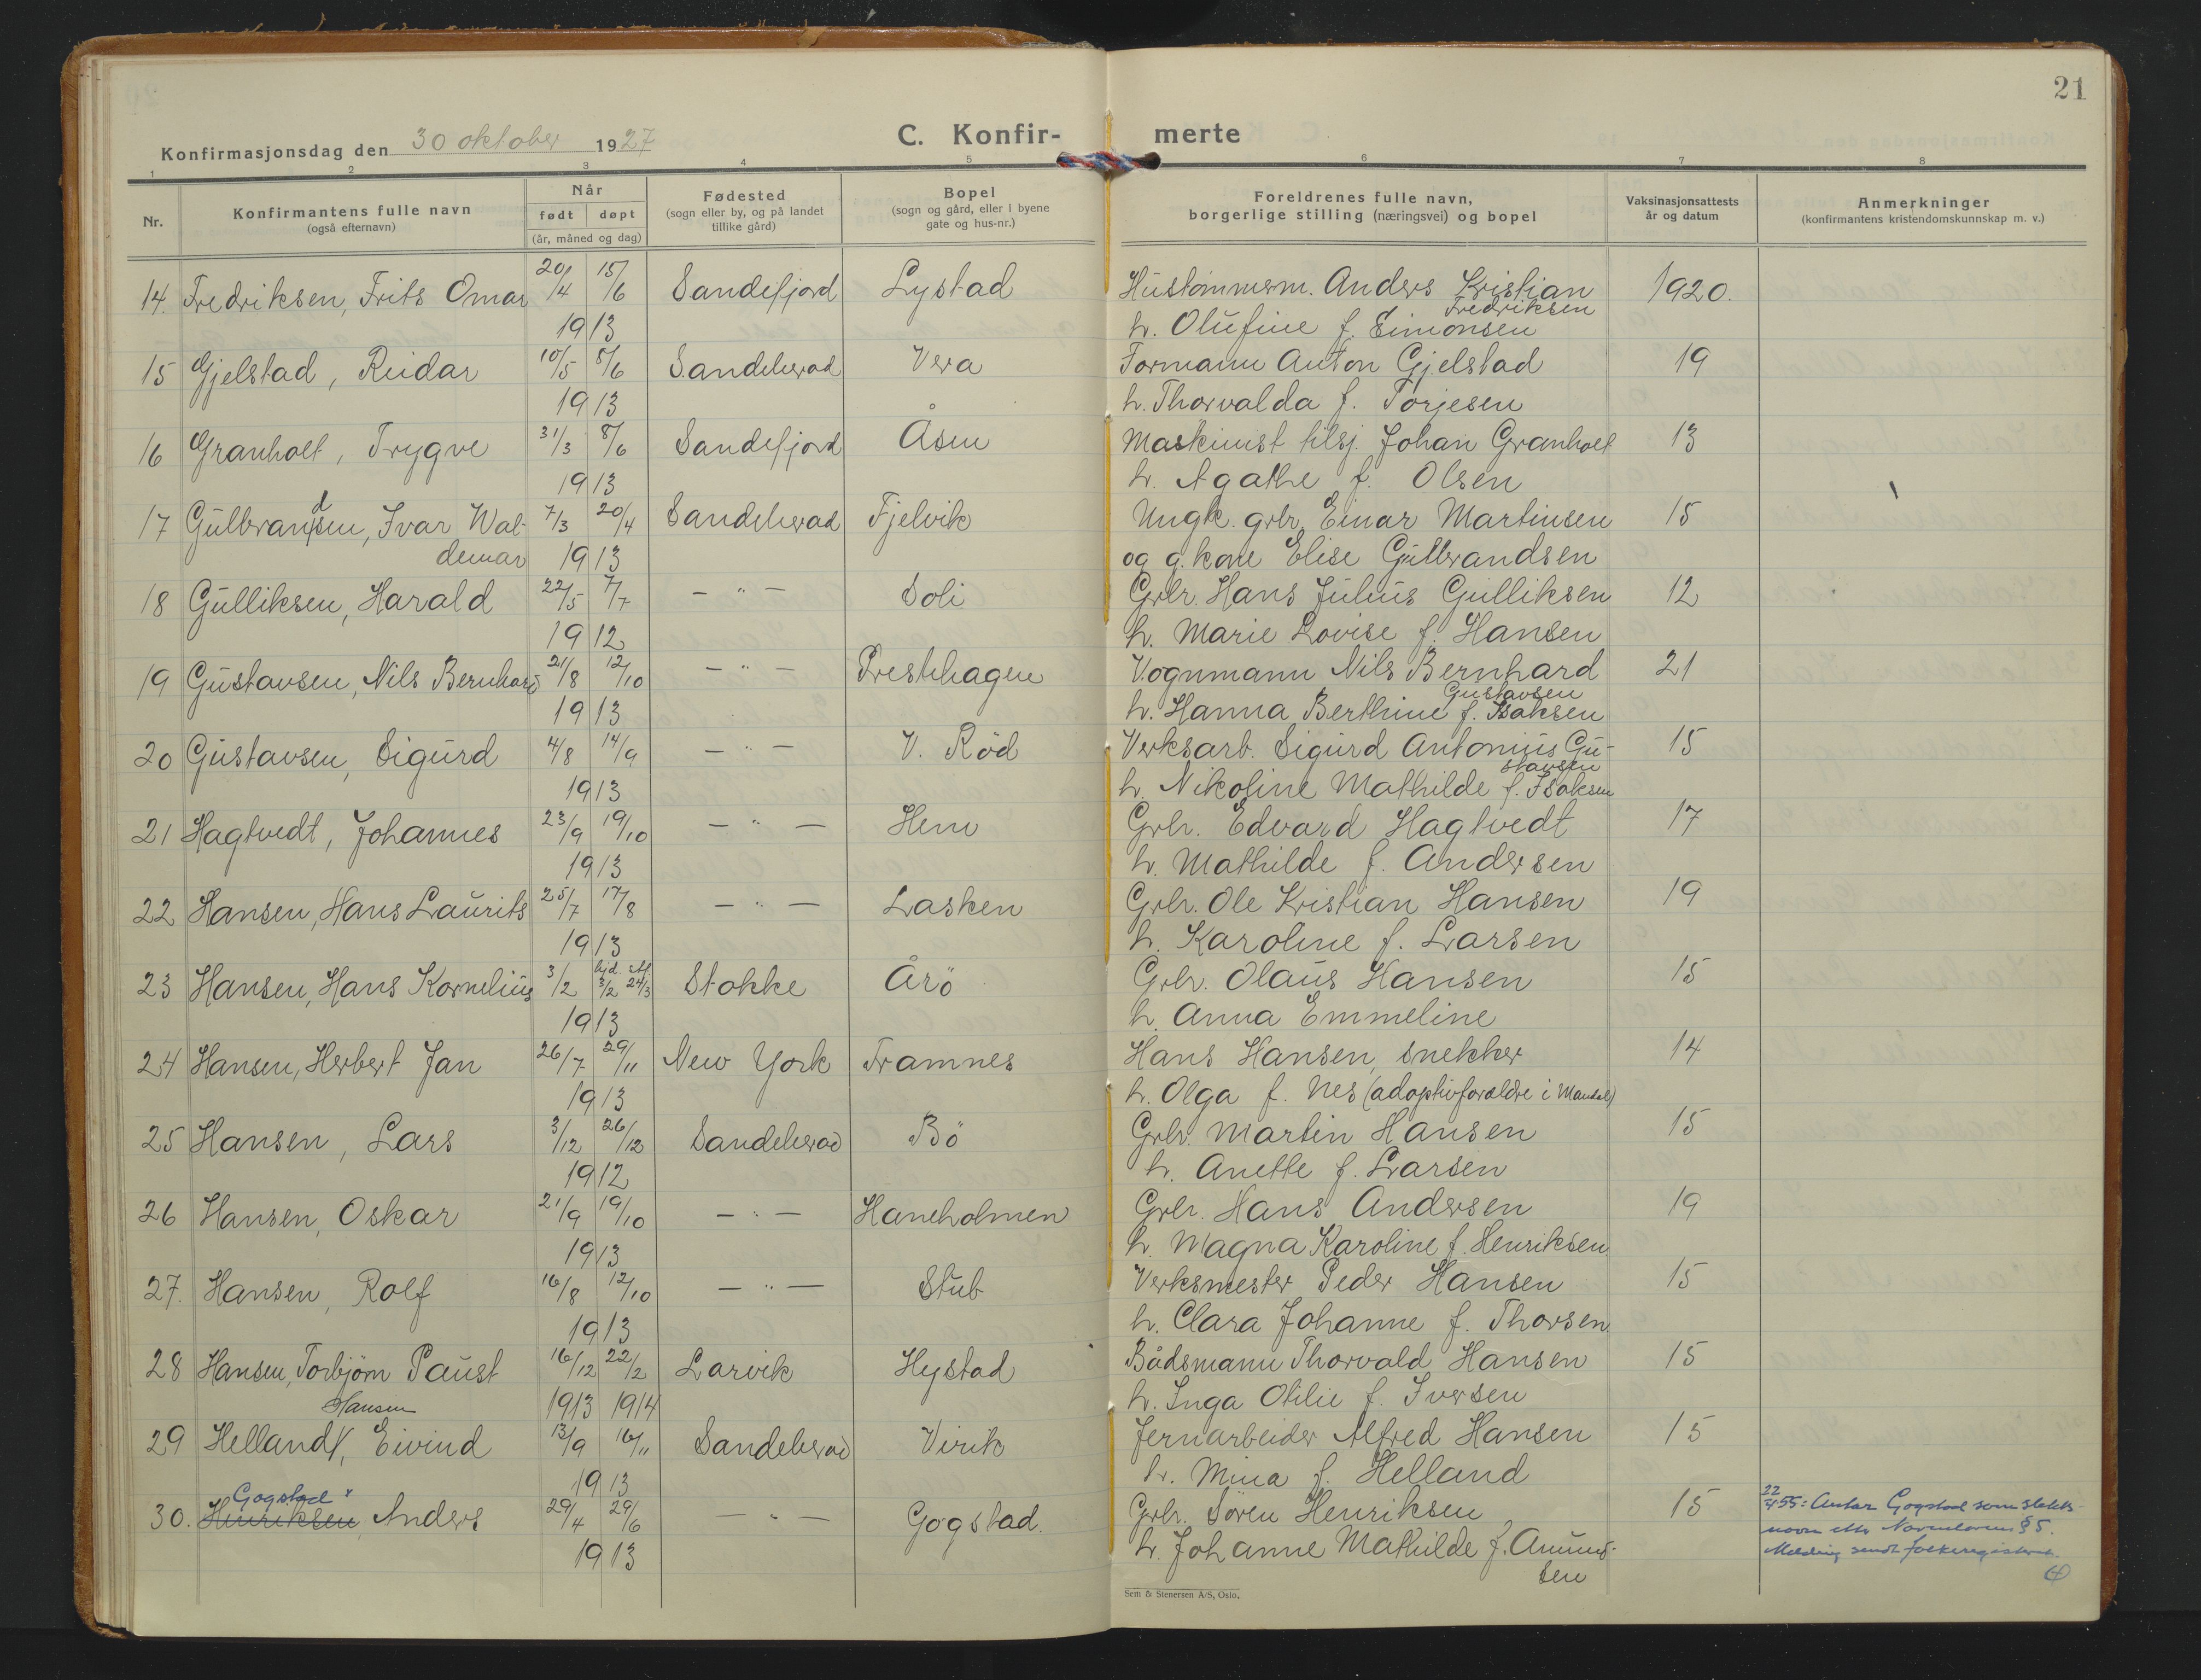 21
Konfirmasjonsdag den 30 oktober 1927
C. Konfir- merte
1 2 3 4 5 6 7 8
Nr.
Konfirmantens fulle navn
(også efternavn)
Når
født døpt
(år, måned og dag)
Fødested
(sogn eller by, og på landet
tillike gård)
Bopel
(sogn og gård, eller i byene
gate og hus-nr.)
Foreldrenes fulle navn,
borgerlige stilling (næringsvei) og bopel
Vaksinasjonsattests
år og datum
Anmerkninger
(konfirmantens kristendomskunnskap m. v.)
14. Fredriksen, Frits Omar 20/4 15/6 Sandefjord Lystad Hustømmerm. Anders Kristian 1920.
Fredriksen
1913 h. Olufine f. Simonsen
15 Gjelstad, Reidar 10/5 8/6 Sandeherad Vera Formann Anton Gjelstad 19
1913 h. Thorvalda f. Torjesen
16 Granholt, Trygve 31/3 8/6 Sandefjord Åsen Maskinist tilsj. Johan Granholt 13
1913 h. Agathe f. Olsen
17 Gulbrandsen, Ivar Wal- 7/3 20/4 Sandeherad Fjelvik Ungk. grbr. Einar Martinsen 15
demar 1913 og g. kone Elise Gulbrandsen
18 Gulliksen, Harald 22/5 7/7 — " — Soli Grbr. Hans Julius Gulliksen 12
1912 h. Marie Lovise f. Hansen
19 Gustavsen, Nils Bernhard 21/8 12/10 — " — Prestehagen Vognmann Nils Bernhard 21
Gustavsen
1913 h. Hanna Berthine f. Isaksen
20 Gustavsen, Sigurd 4/8 14/9 — " — V. Rød Verksarb. Sigurd Antonius Gu- 15
stavsen
1913 h. Nikoline Mathilde f. Isaksen
21 Hagtvedt, Johannes 23/9 19/10 — " — Hem Grbr. Edvard Hagtvedt 17
1913 h. Mathilde f. Andersen
22 Hansen, Hans Laurits 25/7 17/8 — " — Lasken Grbr. Ole Kristian Hansen 19
1913 h. Karoline f. Larsen
23 Hansen, Hans Kornelius 3/2 hjd. 3/2 st. 24/3 Stokke Årö Grbr. Olaus Hansen 15
1913 h. Anna Emmeline
24 Hansen, Herbert Jan 26/7 29/11 New York Framnes Hans Hansen, snekker 14
1913 h. Olga f. Nes (adoptivforældre i Mandal)
25 Hansen, Lars 3/12 26/12 Sandeherad Bö Grbr. Martin Hansen 15
1912 h. Anette f. Larsen
26 Hansen, Oskar 21/9 19/10 — " — Haneholmen Grbr. Hans Andersen 19
1913 h. Magna Karoline f. Henriksen
27. Hansen, Rolf 16/8 12/10 — " — Stub Verksmester Peder Hansen 15
1913 h. Clara Johanne f. Thorsen
28 Hansen, Torbjörn Paust 16/12 22/2 Larvik Hystad Bådsmann Thorvald Hansen 15
1913 1914 h. Inga Otilie f. Iversen
Hansen
29 Helland, Eivind 13/9 16/11 Sandeherad Virik Jernarbeider Alfred Hansen 15
1913 h. Mina f. Helland
Gogstad
30. Henriksen, Anders 29/4 29/6 — " — Gogstad. Grbr. Sören Henriksen 15
1913 h. Johanne Mathilde f. Amund-
sen
22/4 55: Antar Gogstad som slekts-
navn etter Navneloven § 5.
Melding sendt folkeregisteret.
Sem & Stenersen A/S, Oslo.